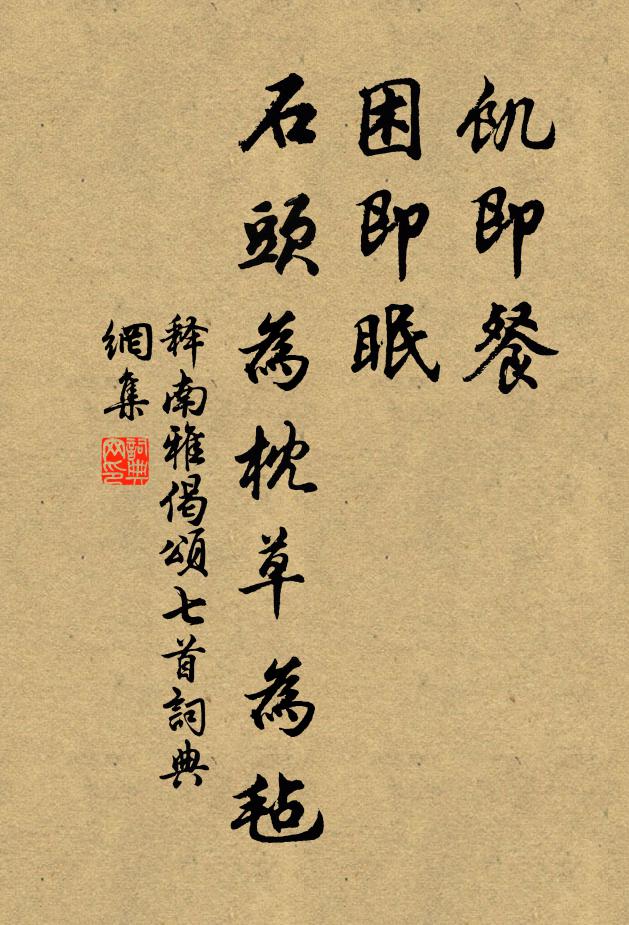 飢即餐
困即眠
石頭為枕草為毡
释南雅偈頌七首詞典
網集
詞典
网印